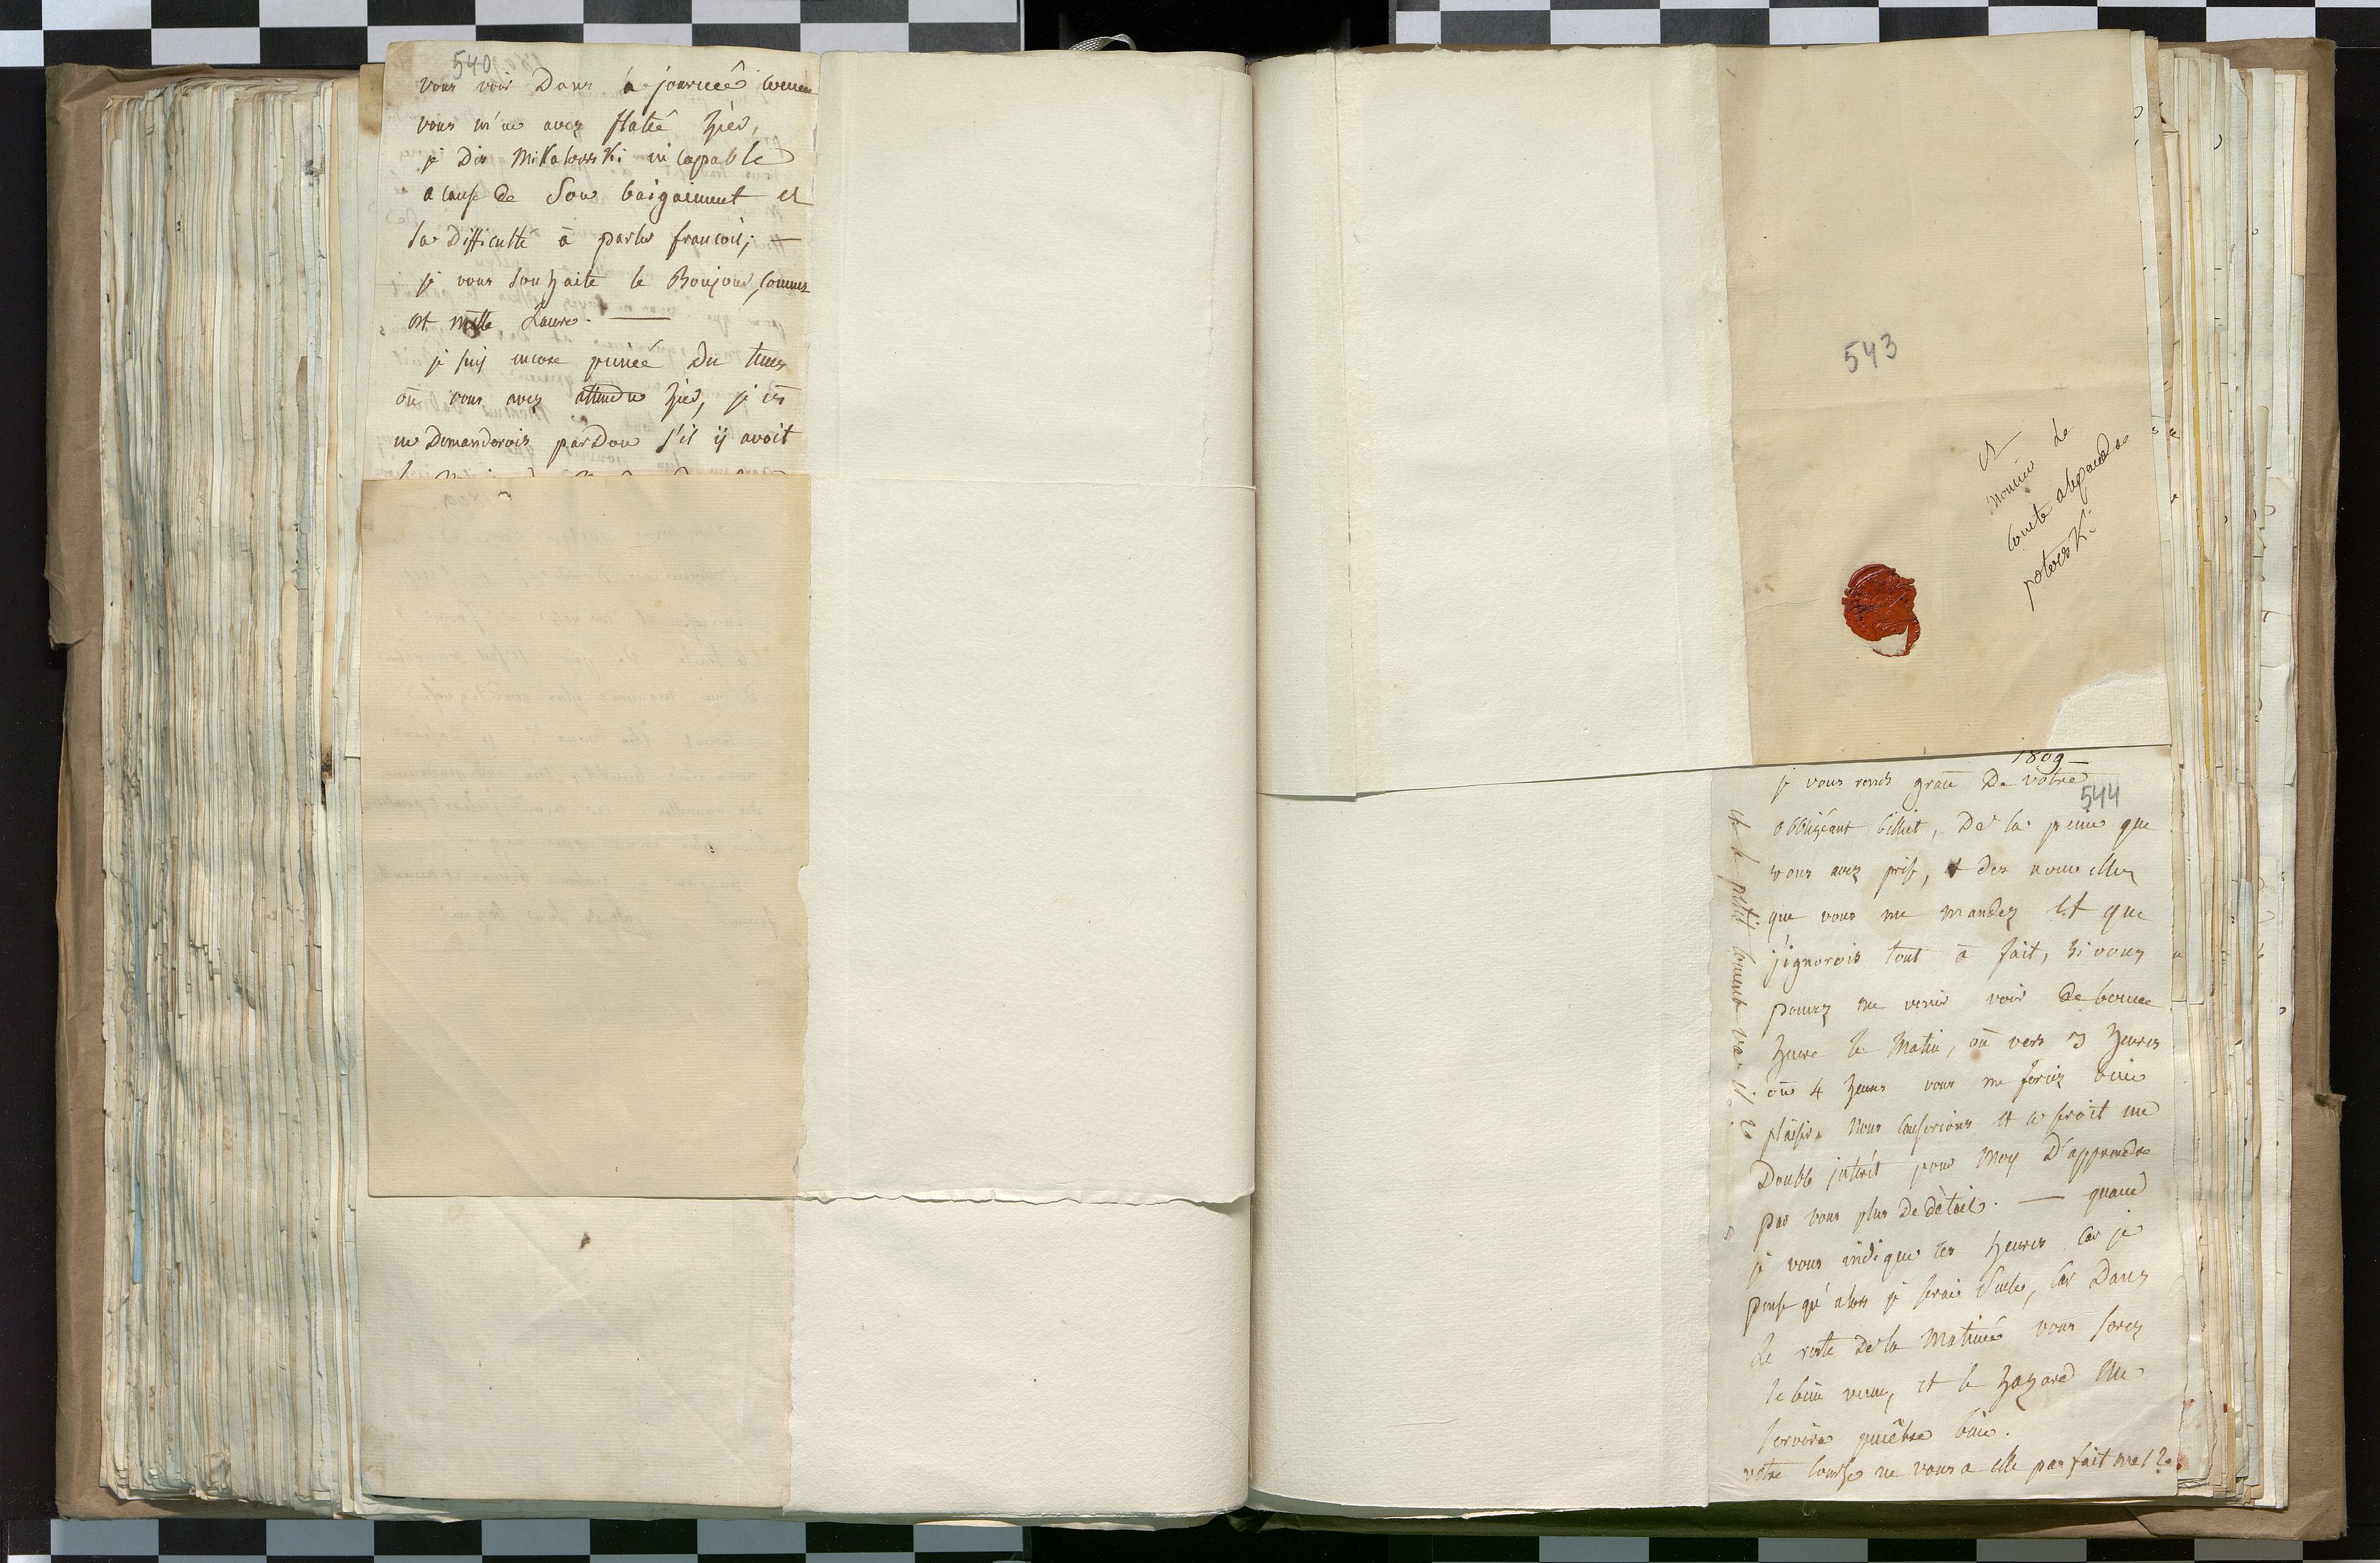 540
vous voir Dans la journeé comme
vous m'en avez flatté hier,
je Dis Mikatowski incapable
a cause de Son baigaiment et
sa Difficulté à parler francois; —
je vous souhaite le Bonjour, comment
est Laure. —
je suis encore peineé Du tems
où vous avez attendu hier, je
demanderois parDon s'il ij avoit
543
A
Monsieur le
Comte alexandre
potocki
1809 —
544
je vous rends grace De votre
obbligeant billiet, De la peine que
vous avez prise, et des nouvelles
que vous me mandez et que
j'ignorois tout à fait, si vous
pouvez me venir voir de bonne
heure le Matin, où vers 3 heures
où 4 heures vous me feriez bien
plaisir, Nous causerions et ce seroit un
Double interêt pour Moy D'apprendre
par vous plus De détail. — quand
je vous indique ces heures car je
pense qu'alors je serai Seule, car Dans
le reste De la Matineé vous serez
le bien venu, et le hazard me
servira peutêtre bien.
votre course ne vous a elle pas fait mal?
et le petit comment va-t-il?